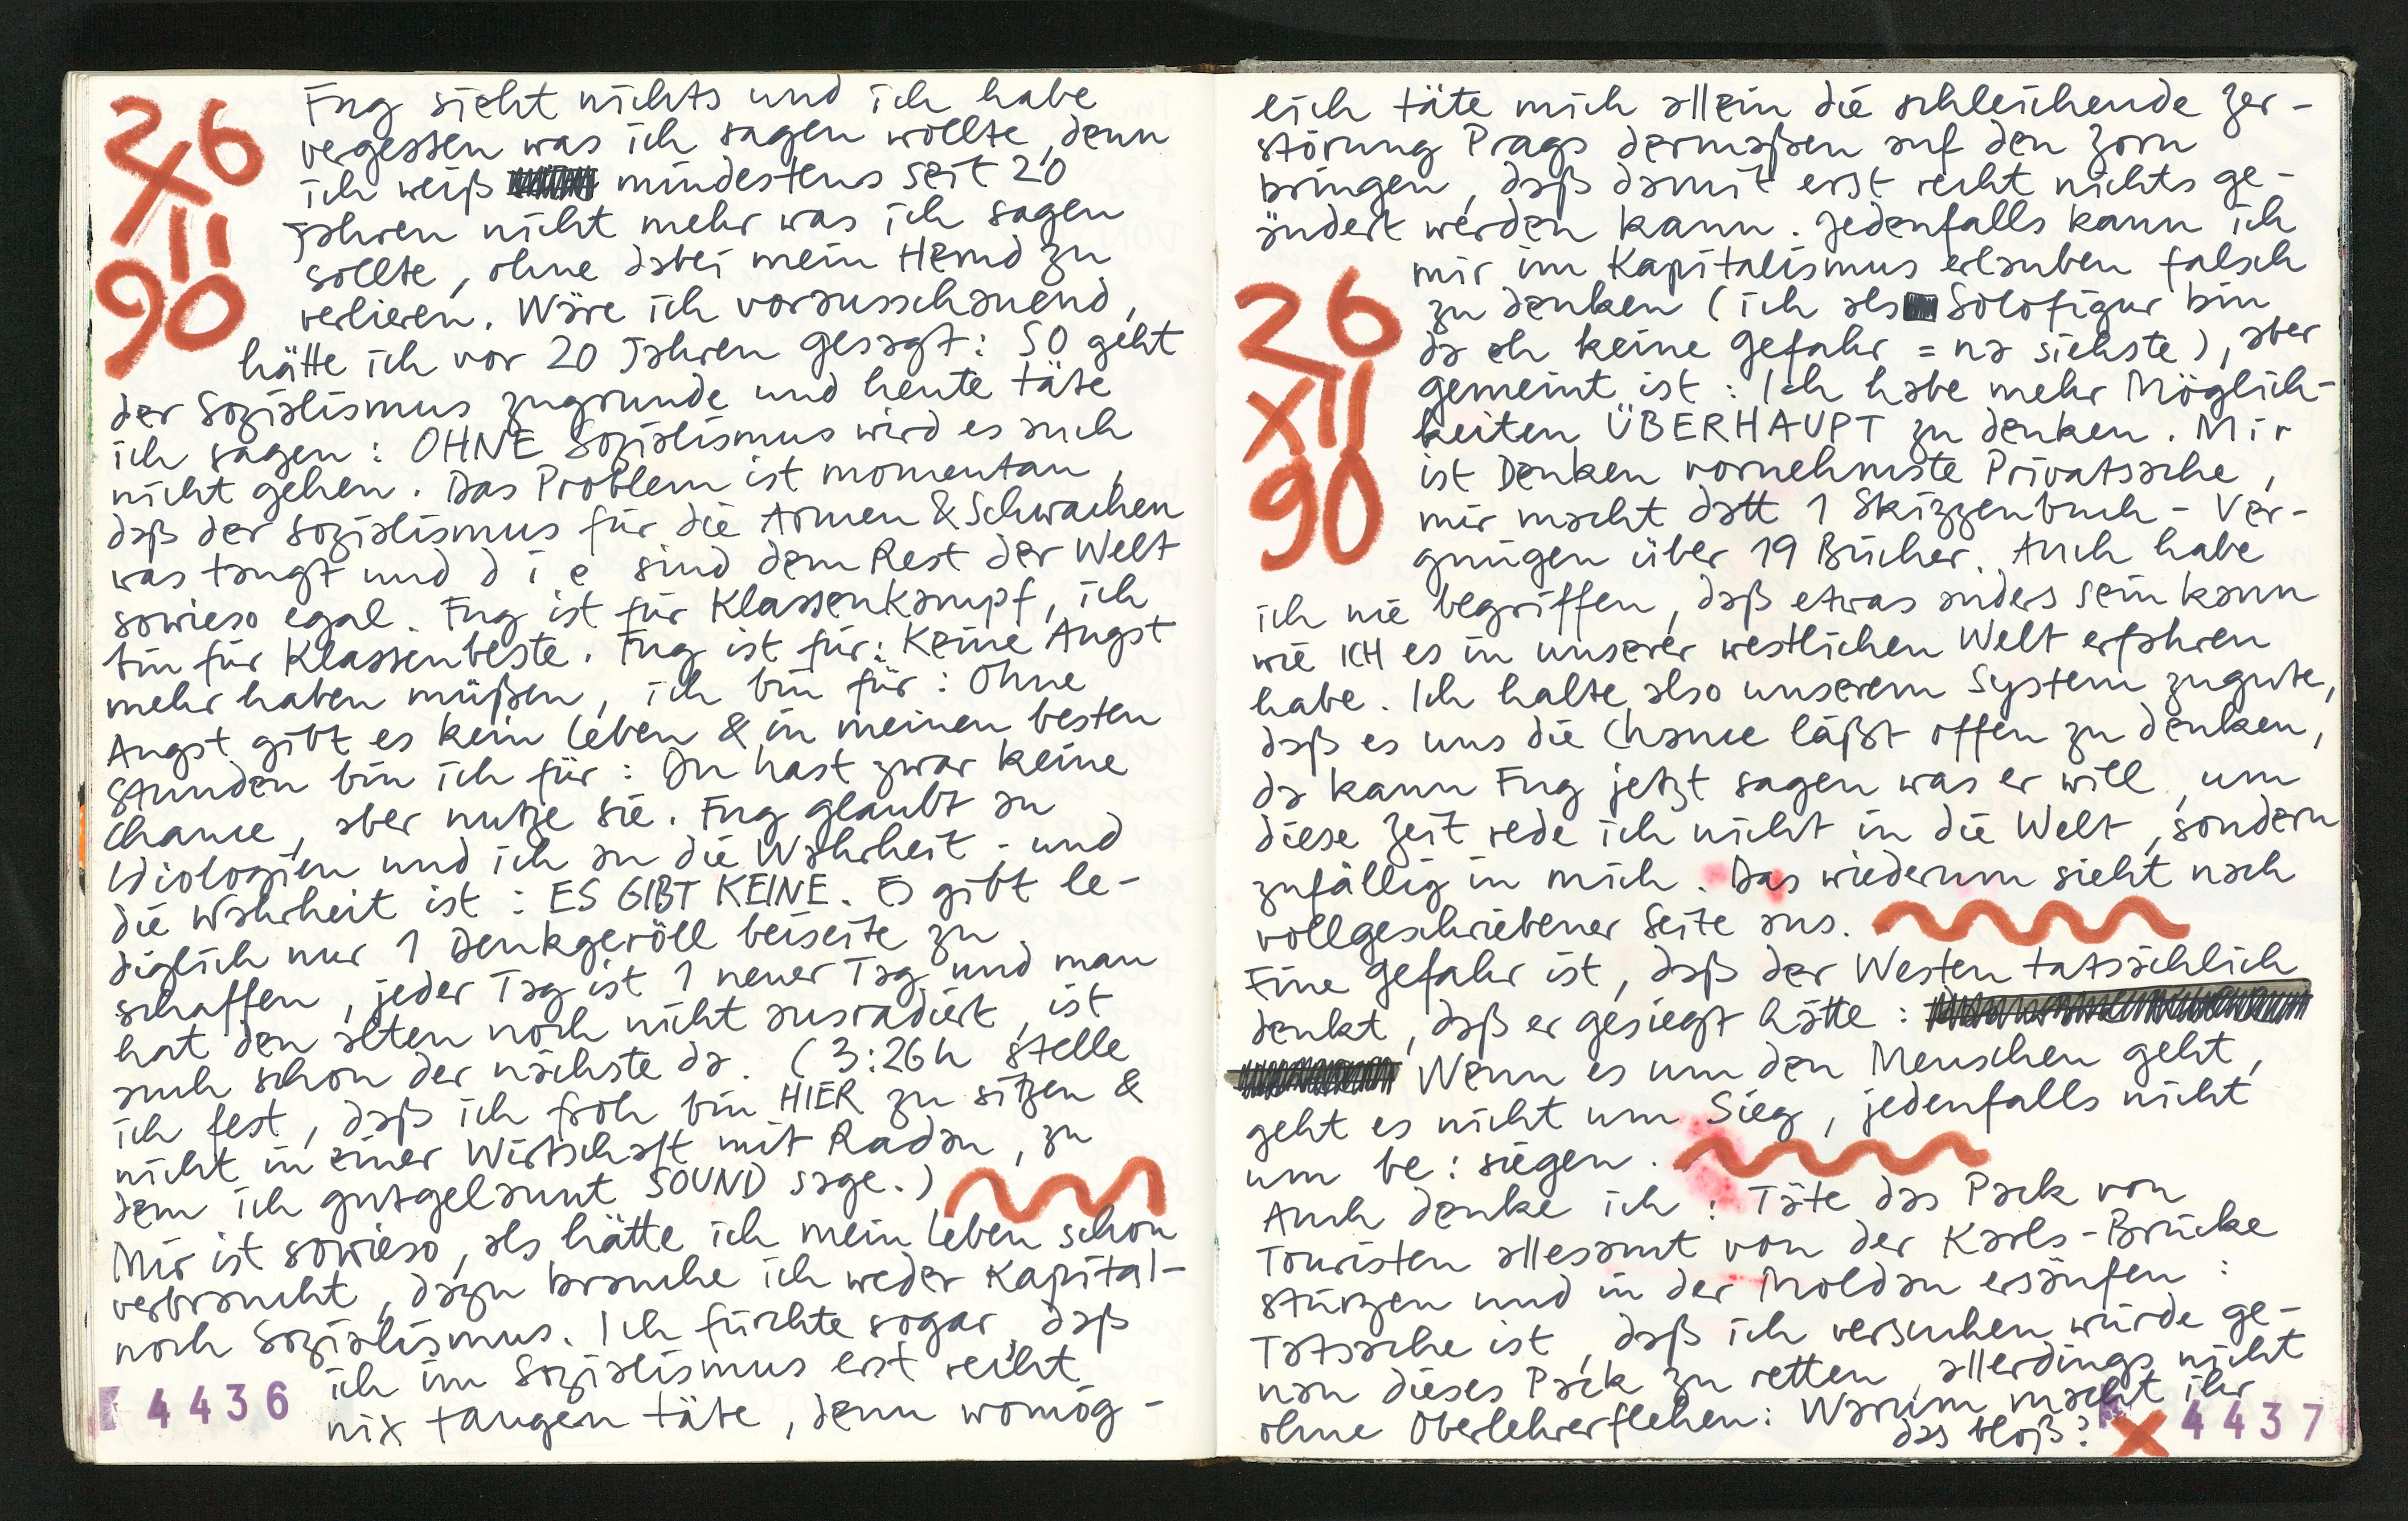 26
XII
90
Fug sieht nichts und ich habe
vergessen was ich sagen wollte, denn
ich weiß mindestens seit 20
Jahren nicht mehr was ich sagen
sollte, ohne dabei mein Hemd zu
verlieren. Wäre ich vorausschauend,
hätte ich vor 20 Jahren gesagt: SO geht
der Sozialismus zugrunde und heute täte
ich sagen: OHNE Sozialismus wird es auch
nicht gehen. Das Problem ist momentan,
daß der Sozialismus für die Armen & Schwachen
was taugt und d i e sind dem Rest der Welt
sowieso egal. Fug ist für Klassenkampf, ich
bin für Klassenbeste. Fug ist für: Keine Angst
mehr haben müßen, ich bin für: Ohne
Angst gibt es kein Leben & in meinen besten
Stunden bin ich für: Du hast zwar keine
Chance, aber nutze sie. Fug glaubt an
Idiologien und ich an die Wahrheit - und
die Wahrheit ist: ES GIBT KEINE. Es gibt le-
diglich nur 1 Denkgeröll beiseite zu
schaffen, jeder Tag ist 1 neuer Tag und man
hat den alten noch nicht ausradiert, ist
auch schon der nächste da. (3:26h stelle
ich fest, daß ich froh bin HIER zu sitzen &
nicht in einer Wirtschaft mit Radau, zu
dem ich gutgelaunt SOUND sage.)
Mir ist sowieso, als hätte ich mein Leben schon
verbraucht, dazu brauche ich weder Kapital-
noch Sozialismus. Ich fürchte sogar, daß
ich im Sozialismus erst recht
nix taugen täte, denn womög-
4436
lich täte mich allein die schleichende Zer-
störung Prags dermaßen auf den Zorn
bringen, daß damit erst recht nichts ge-
ändert werden kann. Jedenfalls kann ich
mir im Kapitalismus erlauben falsch
zu denken (ich als Solofigur bin
da eh keine Gefahr = na siehste), aber
gemeint ist: Ich habe mehr Möglich-
keiten ÜBERHAUPT zu denken. Mir
ist Denken vornehmste Privatsache,
mir macht datt 1 Skizzenbuch-Ver-
gnügen über 19 Bücher. Auch habe
26
XII
90
ich nie begriffen, daß etwas anders sein kann
wie ICH es in unserer westlichen Welt erfahren
habe. Ich halte also unserem System zugute,
daß es uns die Chance läßt offen zu denken,
da kann Fug jetzt sagen was er will, um
diese Zeit rede ich nicht in die Welt, sondern
zufällig in mich. Das wiederum sieht nach
vollgeschriebener Seite aus.
Eine Gefahr ist, daß der Westen tatsächlich
denkt, daß er gesiegt hätte:
Wenn es um den Menschen geht,
geht es nicht um Sieg, jedenfalls nicht
um be:siegen.
Auch denke ich: Täte das Pack von
Touristen allesamt von der Karls-Brücke
stürzen und in der Moldau ersäufen:
Tatsache ist, daß ich versuchen würde ge-
nau dieses Pack zu retten, allerdings nicht
ohne Oberlehrerflehen: Warum macht ihr
das bloß?
4437